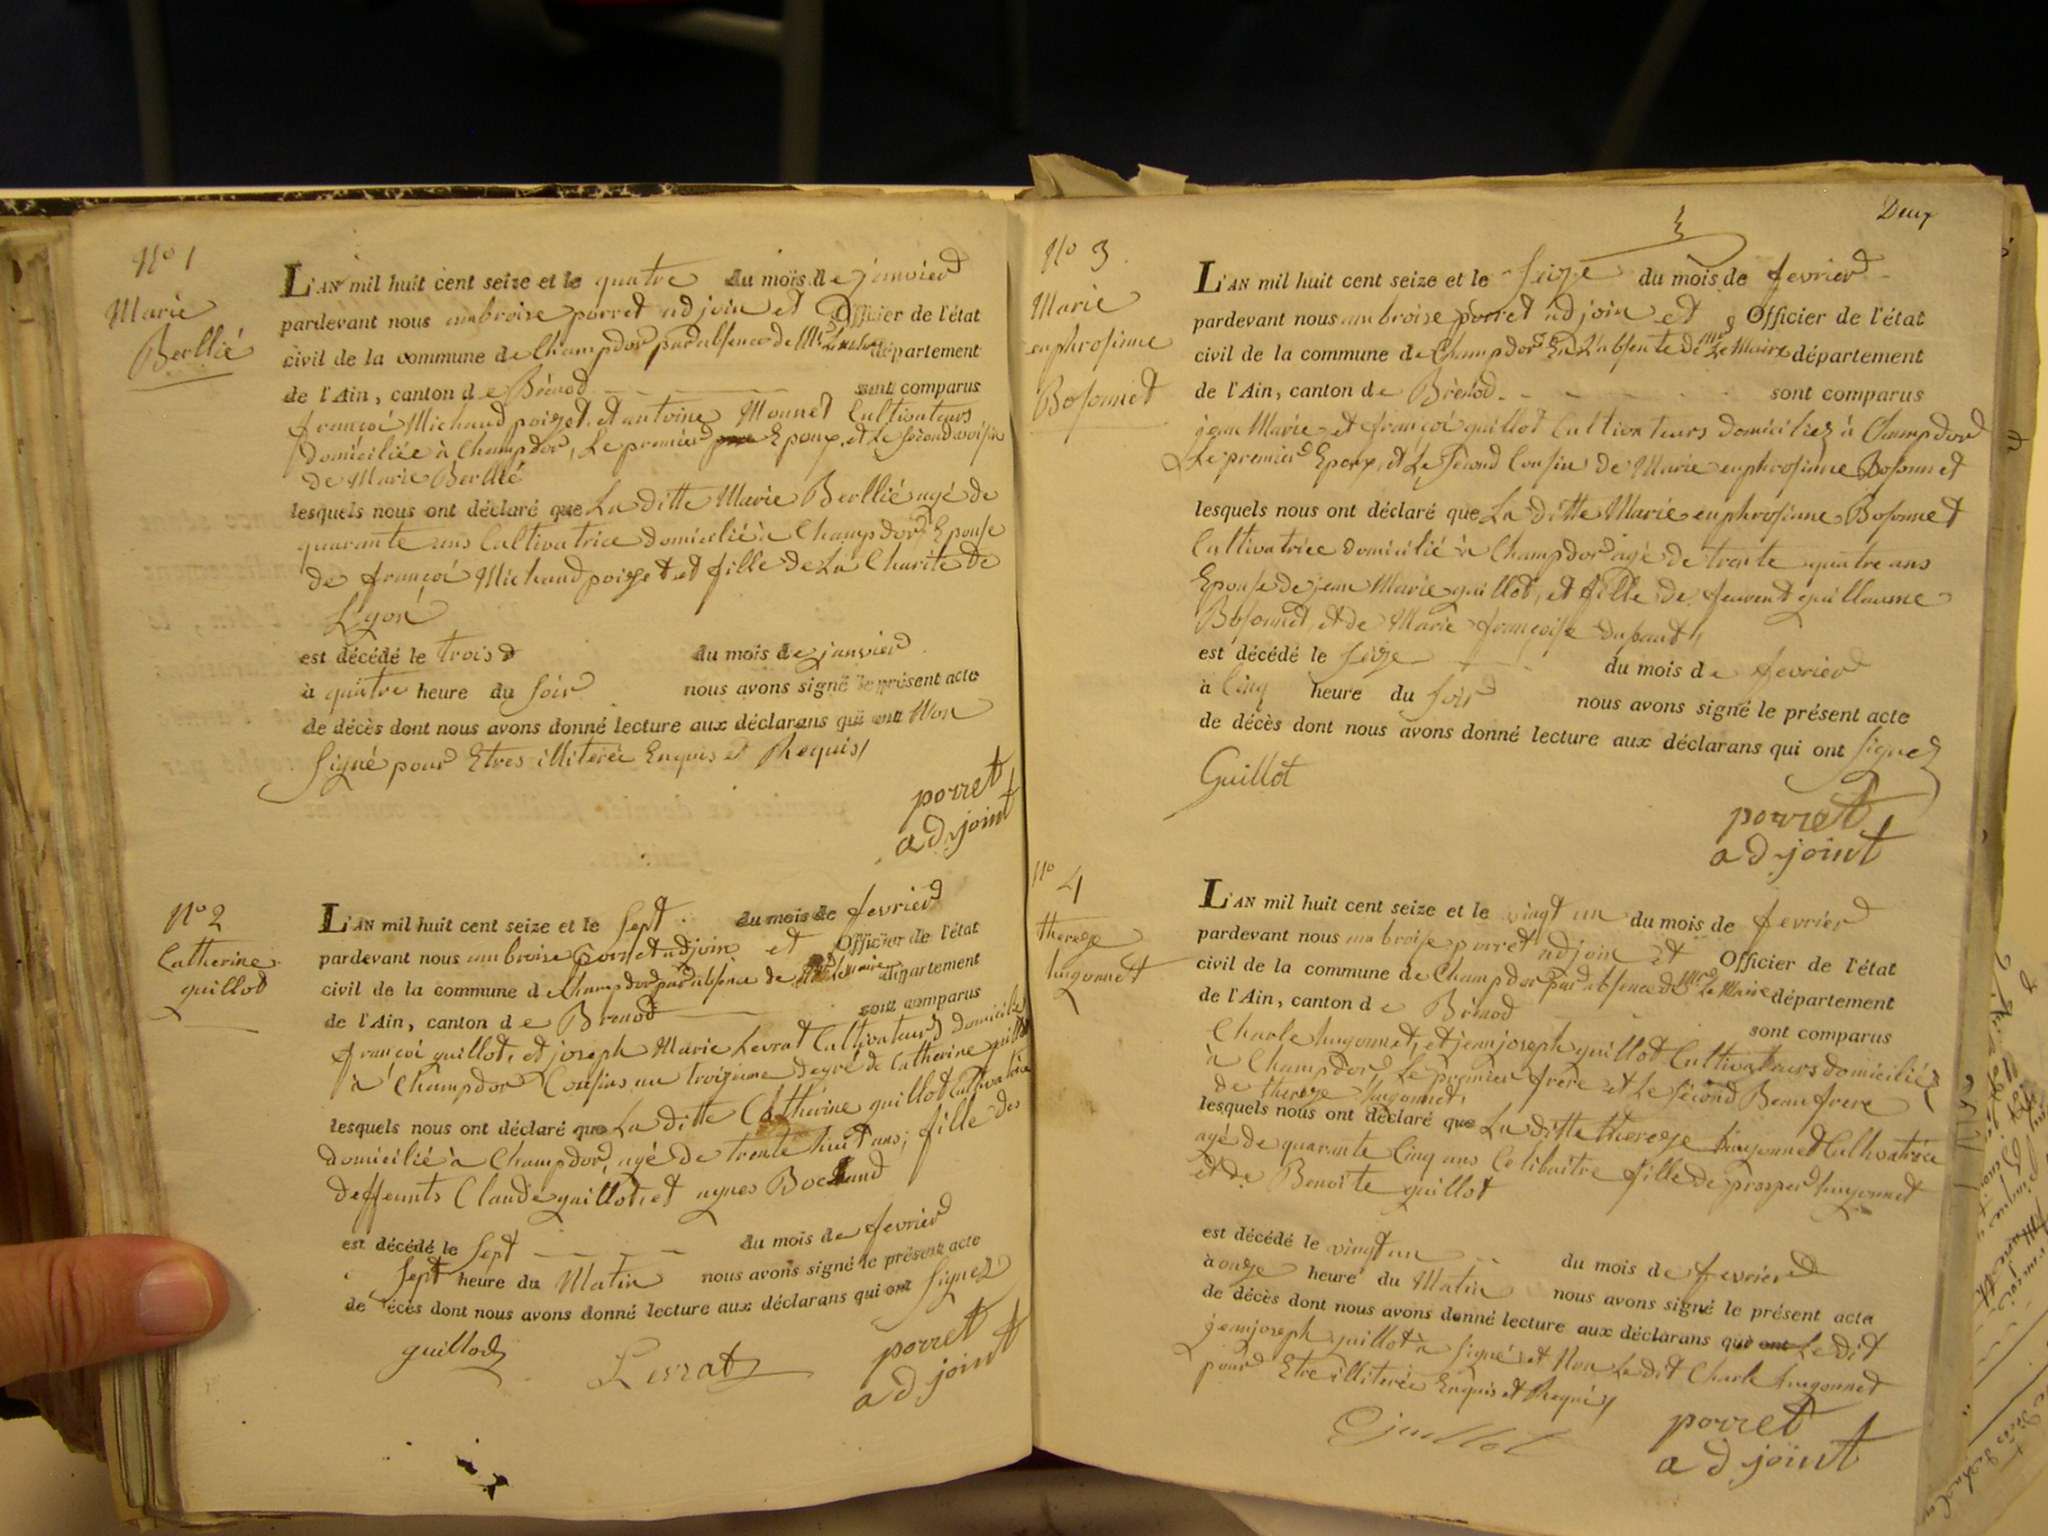 N° 1
Marie
Berllié
L'AN mil huit cent seize et le quatre du mois de janvier
pardevant nous ambroise porret adjoin et Officier de l'état
civil de la commune de Champdor par absence de Mr Le Maire département
de l'Ain, canton de Brénod sont comparus
françoi Michaud poizet, et antoine Monnet Cultivateurs
domiciliée à Champdor, Le premier Epoux, et Le second voisin
de Marie Berllié
lesquels nous ont déclaré que La ditte Marie Berllié agé de
quarante ans Cultivatrice domicilié à Champdor, Epouse
de françoi Michaud poizet et fille de La Charité de
Lyon
est décédé le trois du mois de janvier
à quatre heure du soir nous avons signé le présent acte
de décès dont nous avons donné lecture aux déclarans qui ont Non
signé pour Etres illiterée Enquis et Requis
porret
adjoint
N° 2
Catherine
guillot
L'AN mil huit cent seize et le sept du mois de fevrier
pardevant nous ambroise porret adjoin et Officier de l'état
civil de la commune de Champdor par absence de Mr le Maire département
de l'Ain, canton de Brenod sont comparus
françoi guillot, et joseph Marie Levrat Cultivateurs domicilié
à Champdor Cousins au troizieme degré de Catherine guillot
lesquels nous ont déclaré que La ditte Catherine guillot Cultivatrice
domicilié à Champdor, agé de trente huit ans, fille des
deffeunts Claude guillot, et agnes Bochand
est décédé le sept du mois de fevrier
sept heure du Matin nous avons signé le présent acte
de écès dont nous avons donné lecture aux déclarans qui ont signez
guillot
Levrat
porret
adjoint
Deux
N° 3
Marie
euphrosinne
Bosonnet
L'AN mil huit cent seize et le seize du mois de fevrier
pardevant nous ambroise porret adjoin et Officier de l'état
civil de la commune de Champdor En L'absente de Mr Le Maire département
de l'Ain, canton de Brénod sont comparus
jean Marie et françoi guillot Cultivateurs domiciliez à Champdor
Le premier Epoux, et Le second Cousin de Marie euphrosinne Bosonnet
lesquels nous ont déclaré que La ditte Marie euphrosinne Bosonnet
Cultivatrice domicilié à Champdor agé de trente quatre ans
Epouse de jean Marie guillot, et fille de feurent guillaume
Bosonnet, et de Marie françoise dupant
est décédé le seize du mois de fevrier
à Cinq heure du soir nous avons signé le présent acte
de décès dont nous avons donné lecture aux déclarans qui ont signez
Guillot
porret
adjoint
N° 4
thereze
hugonnet
L'AN mil huit cent seize et le vingt un du mois de fevrier
pardevant nous ambroise porret adjoin et Officier de l'état
civil de la commune de Champdor par absence de Mr Le Maire département
de l'Ain, canton de Brénod sont comparus
Charle hugonnet, et jean joseph guillot Cultivateurs domiciliéz
à Champdor Le premier frere et Le second Beau frere
de thereze hugonnet,
lesquels nous ont déclaré que La ditte thereze hugonnet Cultivatrice
agé de quarante Cinq ans Celibaitre fille de prosper hugonnet
et de Benoite guillot
est décédé le vingt un du mois de fevrier
à onze heure du Matin nous avons signé le présent acte
de décès dont nous avons donné lecture aux déclarans qui ont Le dit
jean joseph guillot à signé, et Non Le dit Charle hugonnet
pour Etre illiterée Enquis et Requis
Guillot
porret
adjoint